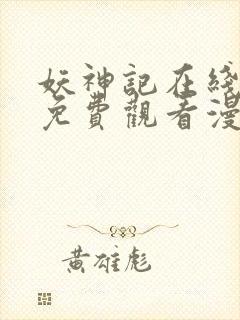 妖神記在綫
免費觀看漫
黃雄彪